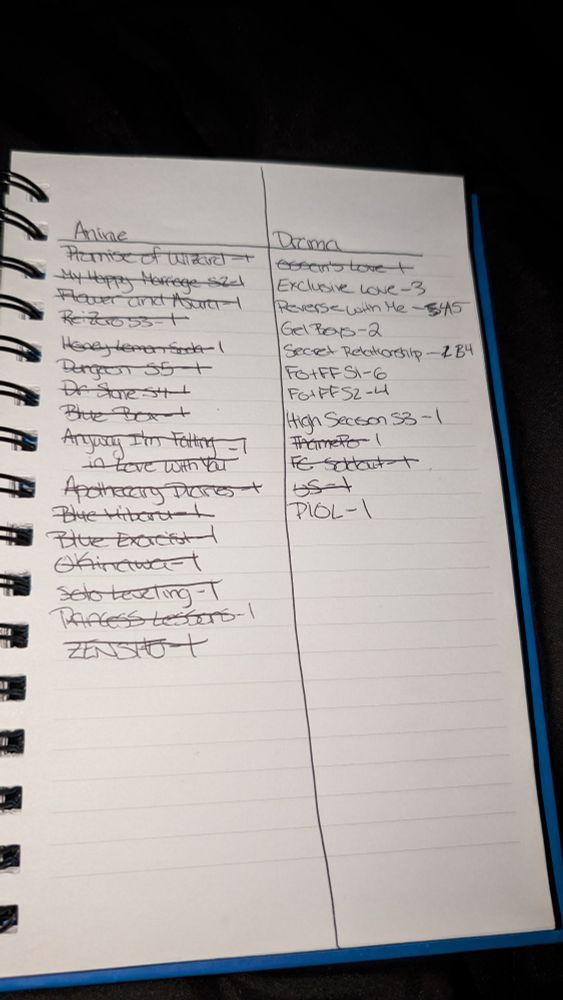 Anime
Promise of Wizard-1
My Happy Marriage S2-1
Flower and Asura-1
Re:Zero S3-1
Honey Lemon Soda-1
Dungeon S5-1
Dr. Stone S4-1
Blue Box-1
Anyway I'm Falling -1
in Love with You
Apothecary Diaries-1
Blue Exorcist-1
Okinawa-1
Solo Leveling-1
Princess Lessons-1
ZENSHU-1
Drama
Love-1
Exclusive Love-3
Reverse with Me
Gel Boys-2
Secret Relationship
FotFFS1-6
FotFFS2-4
High Season S3-1
ThamePo-1
US-1